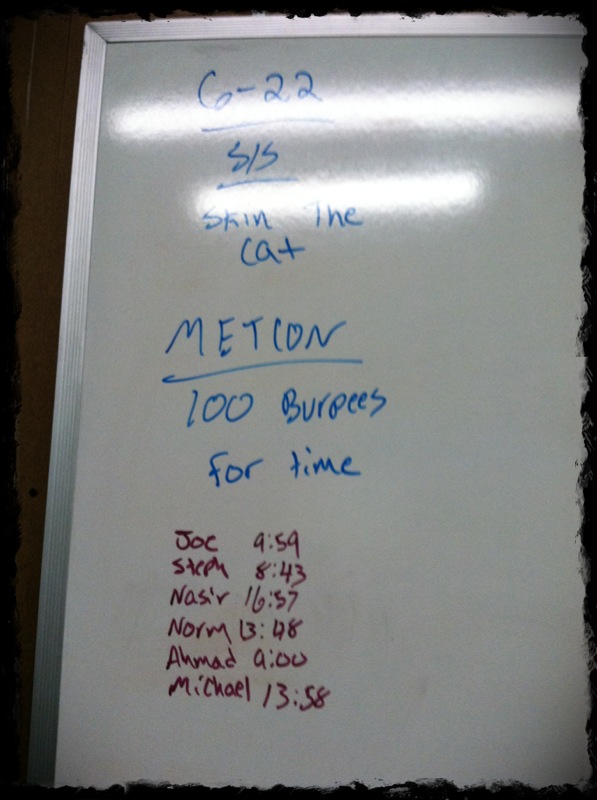 6-22
S/S
Skin The
Cat
METCON
100 Burpees
for time
Joe 9:59
Steph 8:43
Nasir 16:57
Norm 13:48
Ahmad 9:00
Michael 13:58